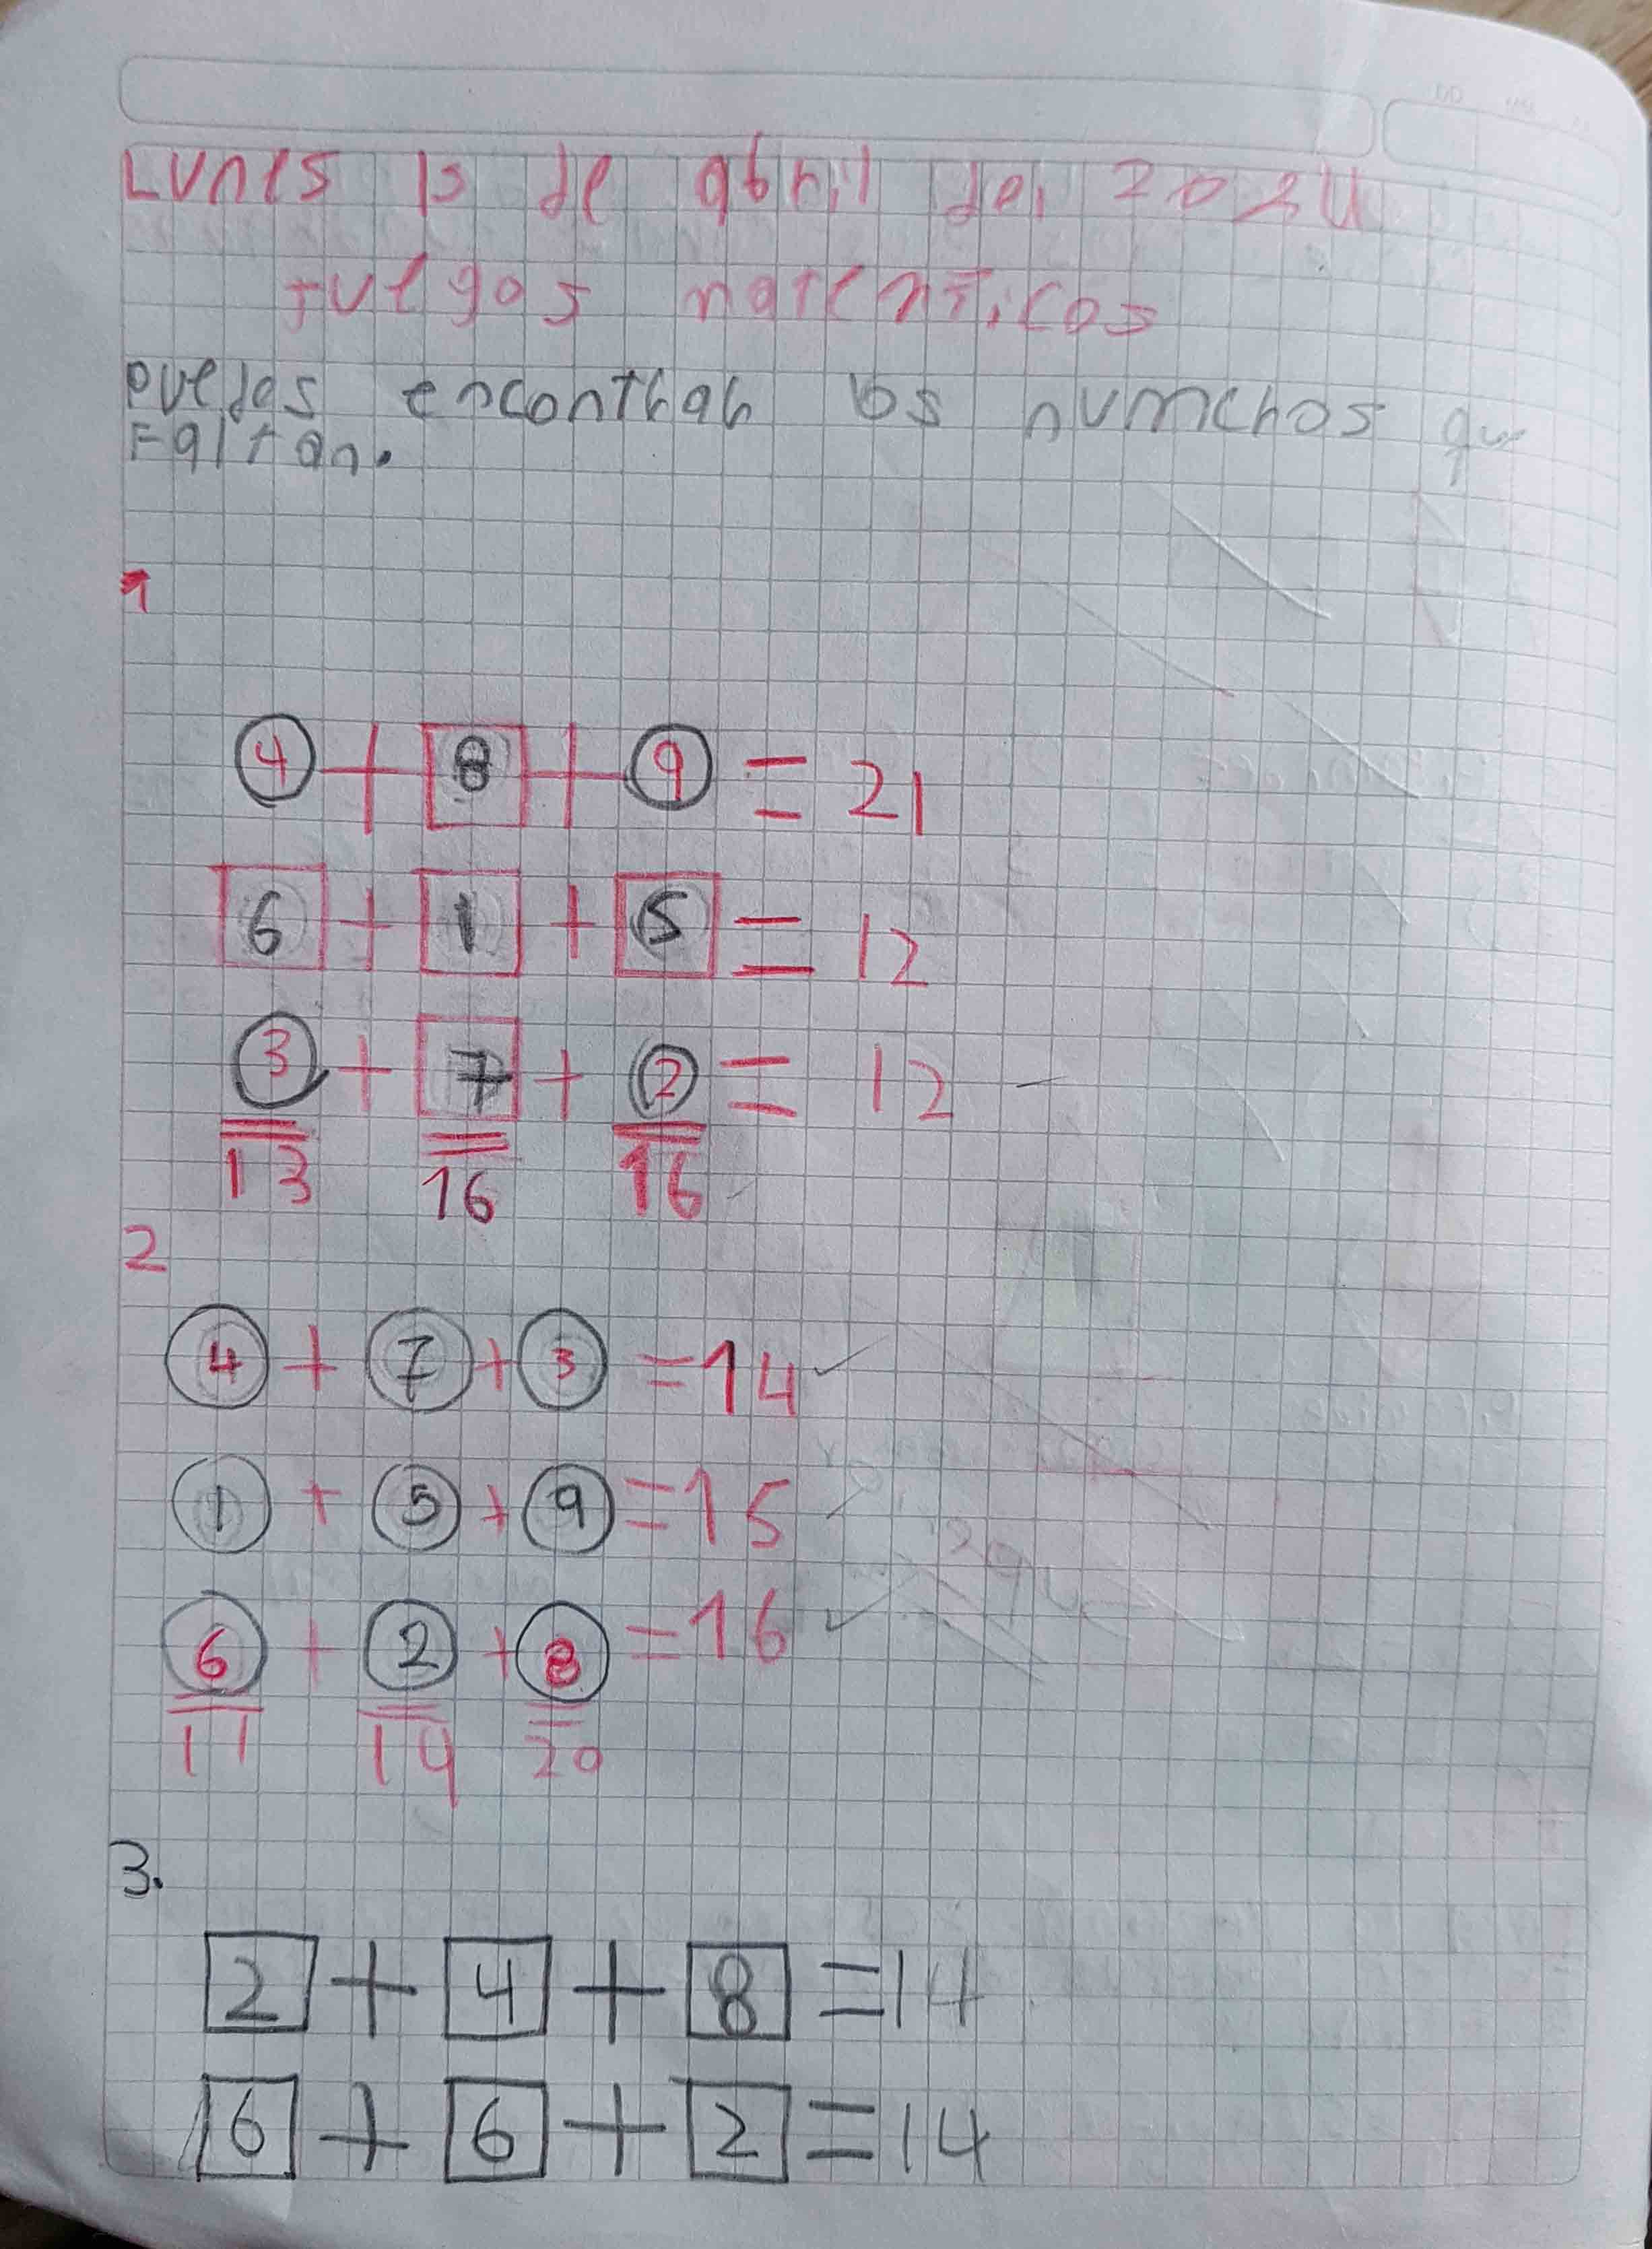 Lunes 15 de abril del 2024
Juegos matemticos
puedas encontrar los numeros que
Faltan.
1
4 + 8 + 9 = 21
6 + 1 + 5 = 12
3 + 7 + 2 = 12
13 16 16
2
4 + 7 + 3 = 14
1 + 5 + 9 = 15
6 + 2 + 8 = 16
11 14 20
3.
2 + 4 + 8 = 14
6 + 6 + 2 = 14